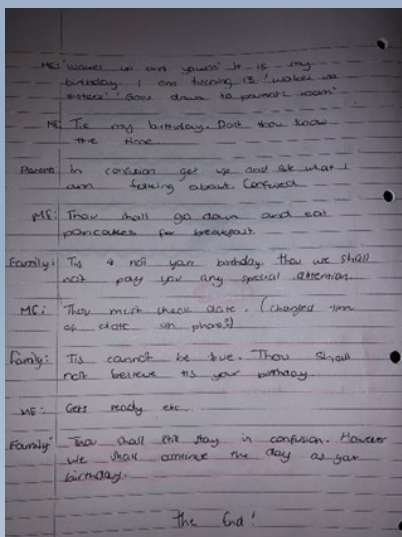 ME: 'Wakes up and yawns' It is my
birthday. I am turning 13 'wakes up
sisters' 'Goes down to parents room'
ME: Tis my birthday. Dont thou know
the time.
Parents: In confusion get up and ask what I
am talking about. Confused
ME: Thou shall go down and eat
pancakes for breakfast.
Family: Tis is not your birthday. thou we shall
not pay you any special attention.
ME: Thou must check date. (changed time
of date on phone?)
Family: Tis cannot be true. Thou should
not believe tis your birthday
ME: Gets ready etc.
Family: Thou shall still stay in confusion. However
we shall continue the day as your
birthday.
the End!